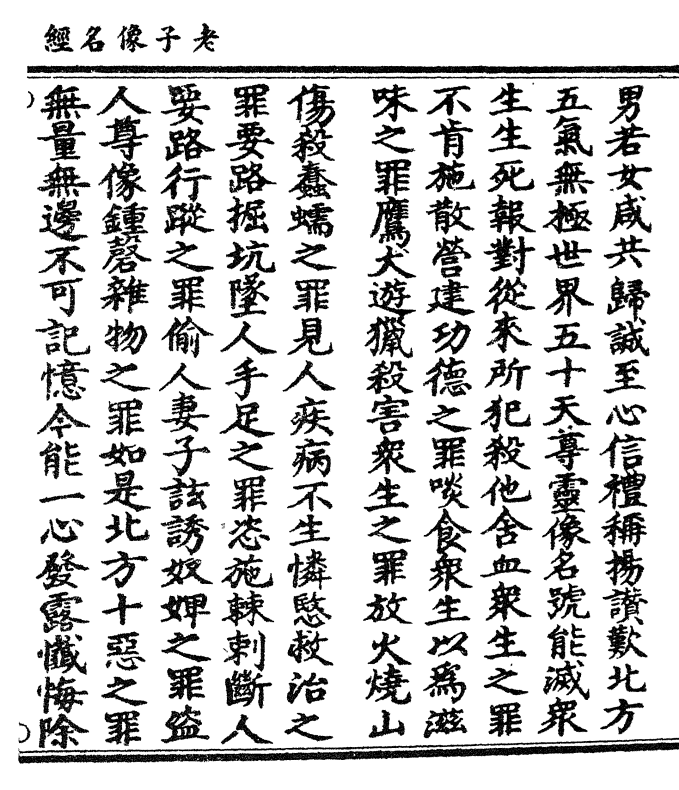 老子像名經
男若女咸共歸誠至心信禮稱揚讃歎北方
五氣無極世界五十天尊靈像名號能滅衆
生生死報對從來所犯殺他含血衆生之罪
不肯施散營建功德之罪啖食衆生以為滋
味之罪鷹犬遊獵殺害衆生之罪放火燒山
傷殺蠢蠕之罪見人疾病不生憐愍救治之
罪要路掘坑墜人手足之罪恣施棘刺斷人
要路行蹤之罪偷人妻子詃誘奴婢之罪盜
人尊像鍾磬雜物之罪如是北方十惡之罪
無量無邊不可記憶今能一心發露懺悔除